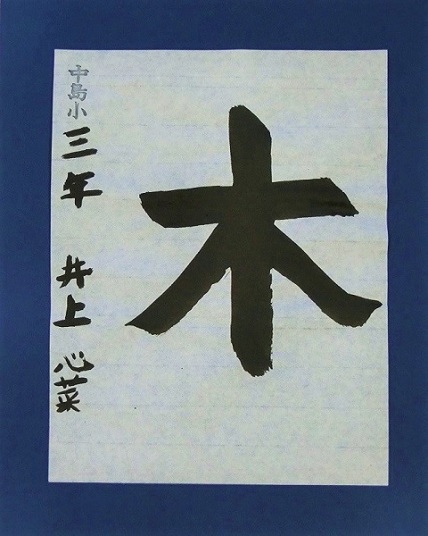 木
中島小
三年 井上 心菜